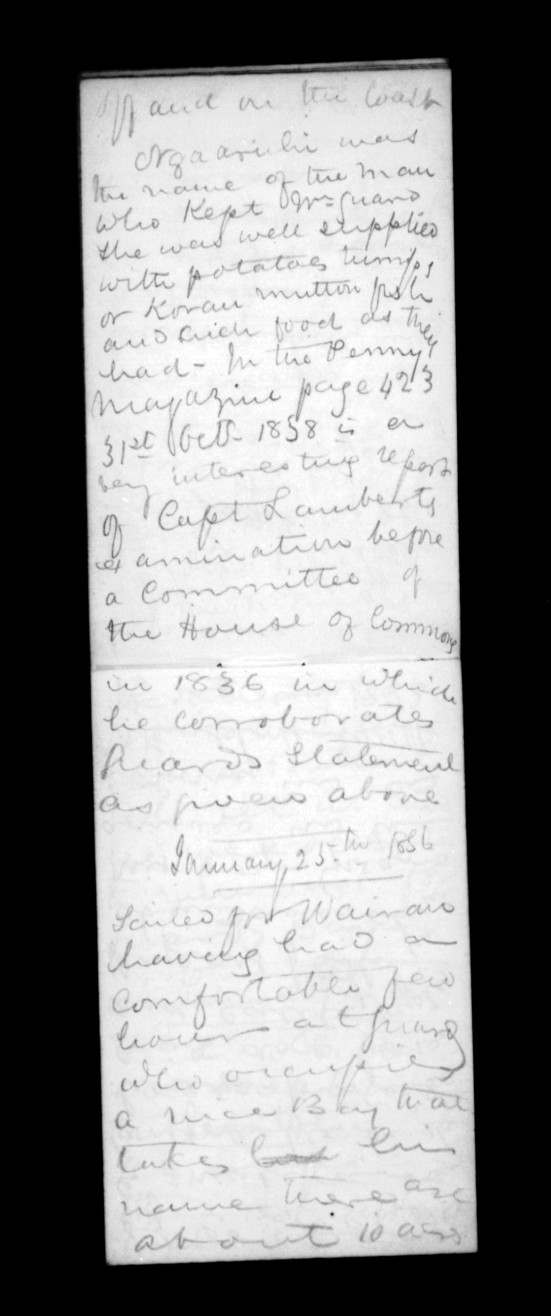 off and on the Coast
Ngaariki was
the name of the man
who Kept Mrs Guard
She was well supplied
with potatoes turnips
or Korau mutton fish
and such food as they
had - In the Penny
Magazine page 423
31st Octr 1838 is a
very interesting report
of Capt Lamberts
examination before
a Committee of
the House of Commons
in 1836 in which
he corroborates
Guards Statement
as given above
January 25th 1856
Sailed for Wairau
having had a
comfortable few
hours at Guards
who occupies
a nice Bay that
takes his
name there are
about 10 acres